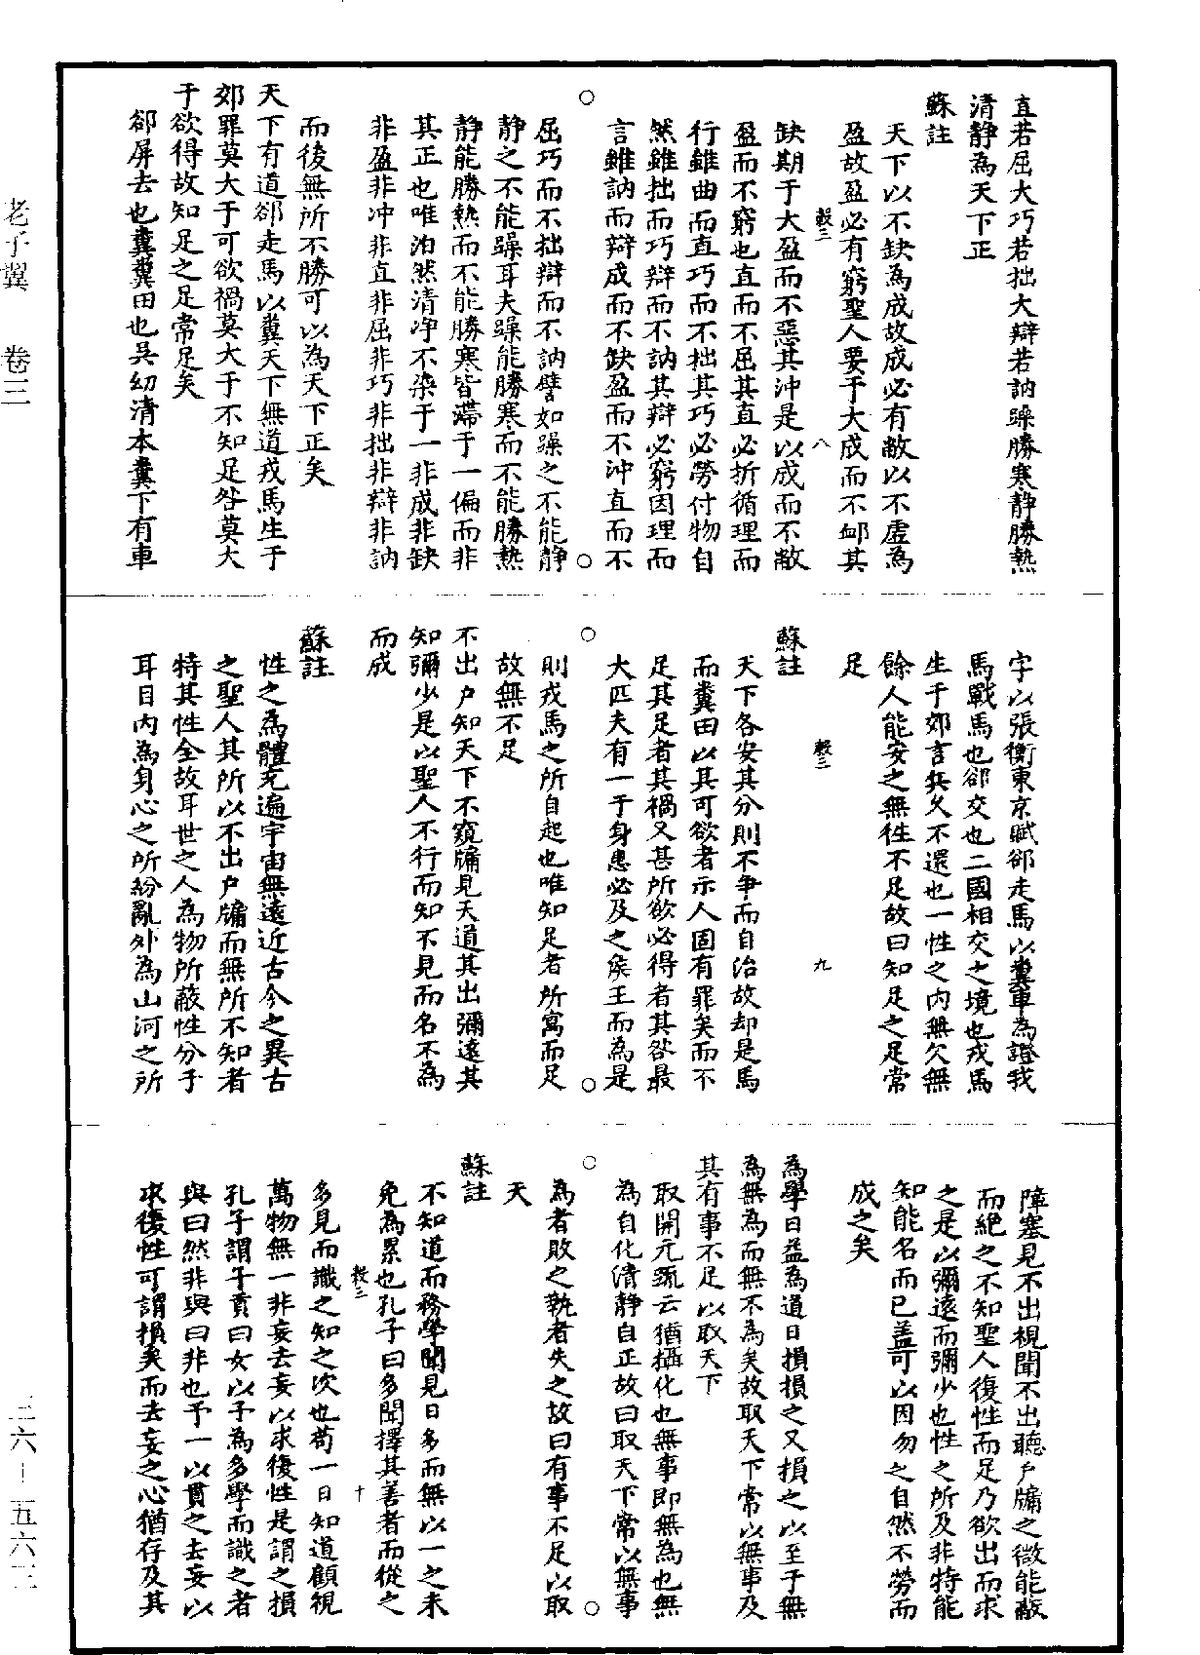 直若屈大巧若拙大辯若訥躁勝寒靜勝熱
清靜為天下正
蘇註
天下以不缺為成故成必有敝以不虛為
盈故盈必有窮聖人要于大成而不卹其
穀三
八
缺期于大盈而不惡其沖是以成而不敝
盈而不窮也直而不屈其直必折循理而
行雖曲而直巧而不拙其巧必勞付物自
然雖拙而巧辯而不訥其辯必窮因理而
言雖訥而辯成而不缺盈而不沖直而不
屈巧而不拙辯而不訥譬如躁之不能靜
靜之不能躁耳夫躁能勝寒而不能勝熱
靜能勝熱而不能勝寒皆滯于一偏而非
其正也唯泊然清淨不染于一非成非缺
非盈非沖非直非屈非巧非拙非辯非訥
而後無所不勝可以為天下正矣
天下有道卻走馬以糞天下無道戎馬生于
郊罪莫大于可欲禍莫大于不知足咎莫大
于欲得故知足之足常足矣
卻屏去也糞糞田也吳幼清本糞下有車
字以張衡東京賦卻走馬以糞車為證我
馬戰馬也卻交也二國相交之境也戎馬
生于郊言兵久不還也一性之內無欠無
餘人能安之無性不足故曰知足之足常
足
穀三
九
蘇註
天下各安其分則不爭而自治故却是馬
而糞田以其可欲者示人固有罪矣而不
足其足者其禍又甚所欲必得者其咎最
大匹夫有一于身患必及之侯王而為是
則戎馬之所自起也唯知足者所寓而足
故無不足
不出戶知天下不窺牖見天道其出彌遠其
知彌少是以聖人不行而知不見而名不為
而成
蘇註
性之為體充遍宇宙無遠近古今之異古
之聖人其所以不出戶牖而無所不知者
特其性全故耳世之人為物所蔽性分于
耳目內為身心之所紛亂外為山河之所
障塞見不出視聞不出聽戶牖之微能蔽
而絕之不知聖人復性而足乃欲出而求
之是以彌遠而彌少也性之所及非特能
知能名而已蓋可以因勿之自然不勞而
成之矣
為學日益為道日損損之又損之以至于無
為無為而無不為矣故取天下常以無事及
其有事不足以取天下
取開元疏云猶攝化也無事即無為也無
為自化清靜自正故曰取天下常以無事
為者敗之執者失之故曰有事不足以取
天
蘇註
不知道而務學聞見日多而無以一之未
免為累也孔子曰多聞擇其善者而從之
穀三
十
多見而識之知之次也苟一日知道顧視
萬物無一非妄去妄以求復性是謂之損
孔子謂子貢曰女以予為多學而識之者
與曰然非與曰非也予一以貫之去妄以
求復性可謂損矣而去妄之心猶存及其
老子翼　卷三
三六-五六三